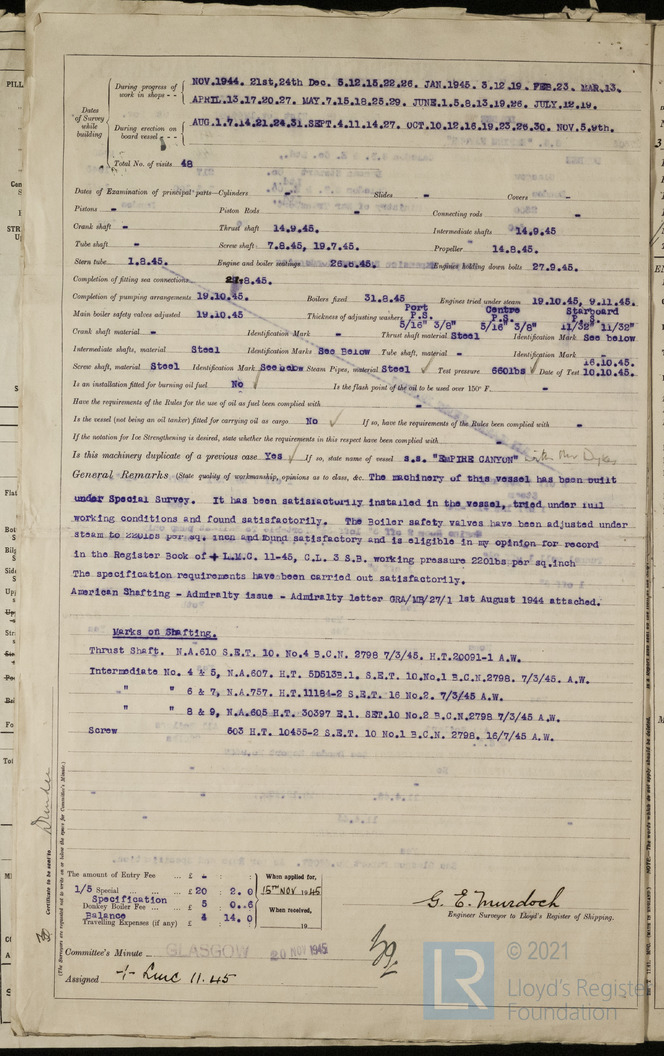 During progress of work in shops - - NOV.1944. 21st,24th Dec. 5.12.15.22.26. JAN.1945. 3.12.19. FEB.23. MAR.13.
APRIL.13.17.20.27. MAY.7.15.18.25.29. JUNE.1.5.8.13.19.26. JULY.12.19.
Dates of Survey while building
During erection on board vessel - - - AUG.1.7.14.21.24.31.SEPT.4.11.14.27. OCT.10.12.16.19.23.26.30. NOV.5.9th.
Total No. of visits 48
Dates of Examination of principal parts—Cylinders - Slides - Covers -
Pistons - Piston Rods - Connecting rods -
Crank shaft - Thrust shaft 14.9.45. Intermediate shafts 14.9.45
Tube shaft - Screw shaft 7.8.45, 19.7.45. Propeller 14.8.45.
Stern tube 1.8.45. Engine and boiler seatings 28.8.45. Engines holding down bolts 27.9.45.
Completion of fitting sea connections 8.45.
Completion of pumping arrangements 19.10.45. Boilers fixed 31.8.45 Engines tried under steam 19.10.45, 9.11.45.
Port Centre Starboard
Main boiler safety valves adjusted 19.10.45 Thickness of adjusting washers P.S. P.S. P.S.
5/16" 3/8" 5/16" 3/8" 11/32" 11/32"
Crank shaft material - Identification Mark - Thrust shaft material Steel Identification Mark See below
Intermediate shafts, material Steel Identification Marks See Below Tube shaft, material - Identification Mark -
16.10.45.
Screw shaft, material Steel Identification Mark See below Steam Pipes, material Steel Test pressure 660lbs Date of Test 10.10.45.
Is an installation fitted for burning oil fuel No Is the flash point of the oil to be used over 150° F. -
Have the requirements of the Rules for the use of oil as fuel been complied with -
Is the vessel (not being an oil tanker) fitted for carrying oil as cargo No If so, have the requirements of the Rules been complied with -
If the notation for Ice Strengthening is desired, state whether the requirements in this respect have been complied with -
Is this machinery duplicate of a previous case Yes If so, state name of vessel s.s. "EMPIRE CANYON"
General Remarks (State quality of workmanship, opinions as to class, &c. The machinery of this vessel has been built
under Special Survey. It has been satisfactorily installed in the vessel, tried under full
working conditions and found satisfactorily. The Boiler safety valves have been adjusted under
steam to 220lbs per sq. inch and found satisfactory and is eligible in my opinion for record
in the Register Book of + L.M.C. 11-45, C.L. 3 S.B. working pressure 220lbs per sq.inch
The specification requirements have been carried out satisfactorily.
American Shafting - Admiralty issue - Admiralty letter GRA/MB/27/1 1st August 1944 attached.
Marks on Shafting.
Thrust Shaft. N.A.610 S.E.T. 10. No.4 B.C.N. 2798 7/3/45. H.T.20091-1 A.W.
Intermediate No. 4 & 5, N.A.607. H.T. 5D513B.1. S.E.T. 10.No.1 B.C.N.2798. 7/3/45. A.W.
" " 6 & 7, N.A.757. H.T.11184-2 S.E.T. 16 No.2. 7/3/45 A.W.
" " 8 & 9, N.A.605 H.T. 30397 E.1. SET.10 No.2 B.C.N.2798 7/3/45 A.W.
Screw 603 H.T. 10455-2 S.E.T. 10 No.1 B.C.N. 2798. 16/7/45 A.W.
Certificate to be sent to Dundee
(The Surveyors are requested not to write on or below the space for Committee's Minute.)
The amount of Entry Fee ... £ - : When applied for,
1/5 Special ... ... £ 20 : 2.0 15TH NOV 1945
Specification
Donkey Boiler Fee ... ... £ 5 0..6 When received,
Balance
Travelling Expenses (if any) £ 4 14.0 19
G. E. Murdoch
Engineer Surveyor to Lloyd's Register of Shipping.
Committee's Minute GLASGOW 20 NOV 1945
Assigned + LMC 11.45
LR
© 2021
Lloyd's Register
Foundation